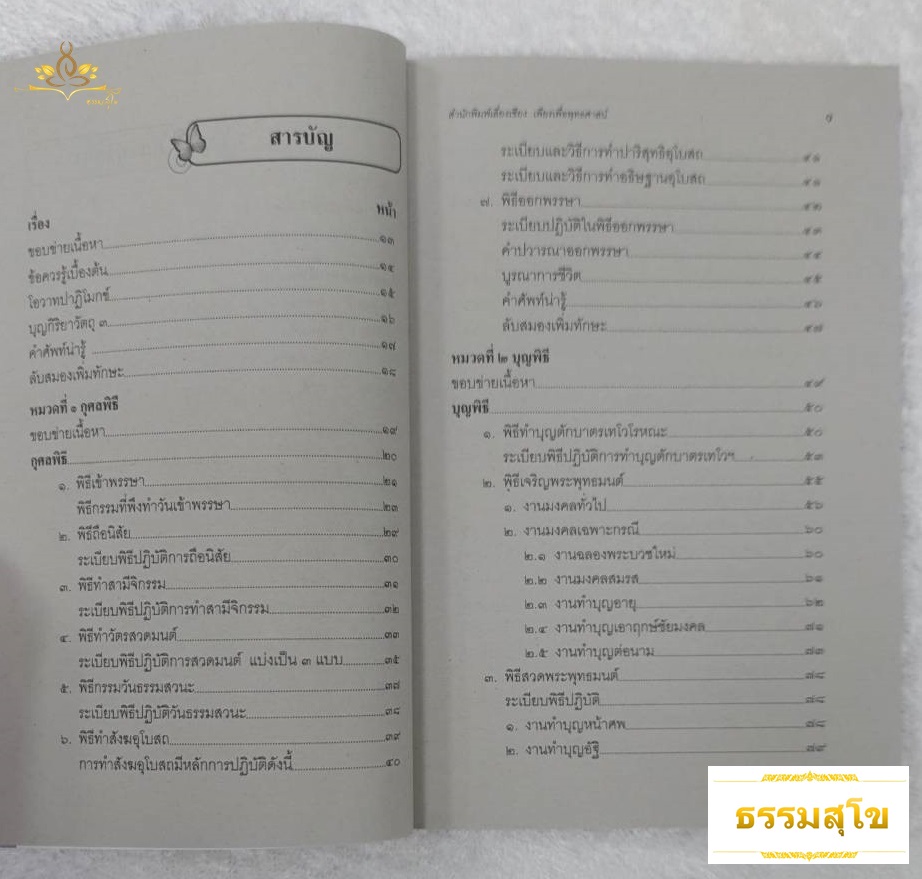 สารบัญ
เรื่อง หน้า
ขอบข่ายเนื้อหา ๑๓
ข้อควรรู้เบื้องต้น ๑๔
โอวาทปาฏิโมกข์ ๑๕
บุญกิริยาวัตถุ ๓ ๑๖
คำศัพท์น่ารู้ ๑๗
ลับสมองเพิ่มทักษะ ๑๘
หมวดที่ ๑ กุศลพิธี
ขอบข่ายเนื้อหา ๑๙
กุศลพิธี ๒๐
๑. พิธีเข้าพรรษา ๒๑
พิธีกรรมที่พึงทำวันเข้าพรรษา ๒๓
๒. พิธีถือนิสัย ๒๙
ระเบียบพิธีปฏิบัติการถือนิสัย ๓๐
๓. พิธีทำสามีจิกรรม ๓๑
ระเบียบพิธีปฏิบัติการทำสามีจิกรรม ๓๒
๔. พิธีทำวัตรสวดมนต์ ๓๓
ระเบียบพิธีปฏิบัติการสวดมนต์ แบ่งเป็น ๓ แบบ ๓๕
๕. พิธีกรรมวันธรรมสวนะ ๓๗
ระเบียบพิธีปฏิบัติวันธรรมสวนะ ๓๘
๖. พิธีทำสังฆอุโบสถ ๓๙
การทำสังฆอุโบสถมีหลักการปฏิบัติดังนี้ ๔๐
สำนักพิมพ์เลี่ยงเชียง เพียรเพื่อพุทธศาสน์ ๗
ระเบียบและวิธีการทำปาริสุทธิอุโบสถ ๕๑
ระเบียบและวิธีการทำอธิษฐานอุโบสถ ๕๑
๗. พิธีออกพรรษา ๕๒
ระเบียบปฏิบัติในพิธีออกพรรษา ๕๓
คำปวารณาออกพรรษา ๕๔
บูรณาการชีวิต ๕๕
คำศัพท์น่ารู้ ๕๖
ลับสมองเพิ่มทักษะ ๕๗
หมวดที่ ๒ บุญพิธี
ขอบข่ายเนื้อหา ๔๙
บุญพิธี ๕๐
๑. พิธีทำบุญตักบาตรเทโวโรหณะ ๕๐
ระเบียบพิธีปฏิบัติการทำบุญตักบาตรเทโวฯ ๕๓
๒. พิธีเจริญพระพุทธมนต์ ๕๕
๑. งานมงคลทั่วไป ๕๖
๒. งานมงคลเฉพาะกรณี ๖๐
๒.๑ งานฉลองพระบวชใหม่ ๖๐
๒.๒ งานมงคลสมรส ๖๑
๒.๓ งานทำบุญอายุ ๖๒
๒.๔ งานทำบุญเอาฤกษ์ชัยมงคล ๗๑
๒.๕ งานทำบุญต่อนาม ๗๓
๓. พิธีสวดพระพุทธมนต์ ๗๘
ระเบียบพิธีปฏิบัติ ๗๘
๑. งานทำบุญหน้าศพ ๗๘
๒. งานทำบุญอัฐิ ๗๙
ธรรมสุโข